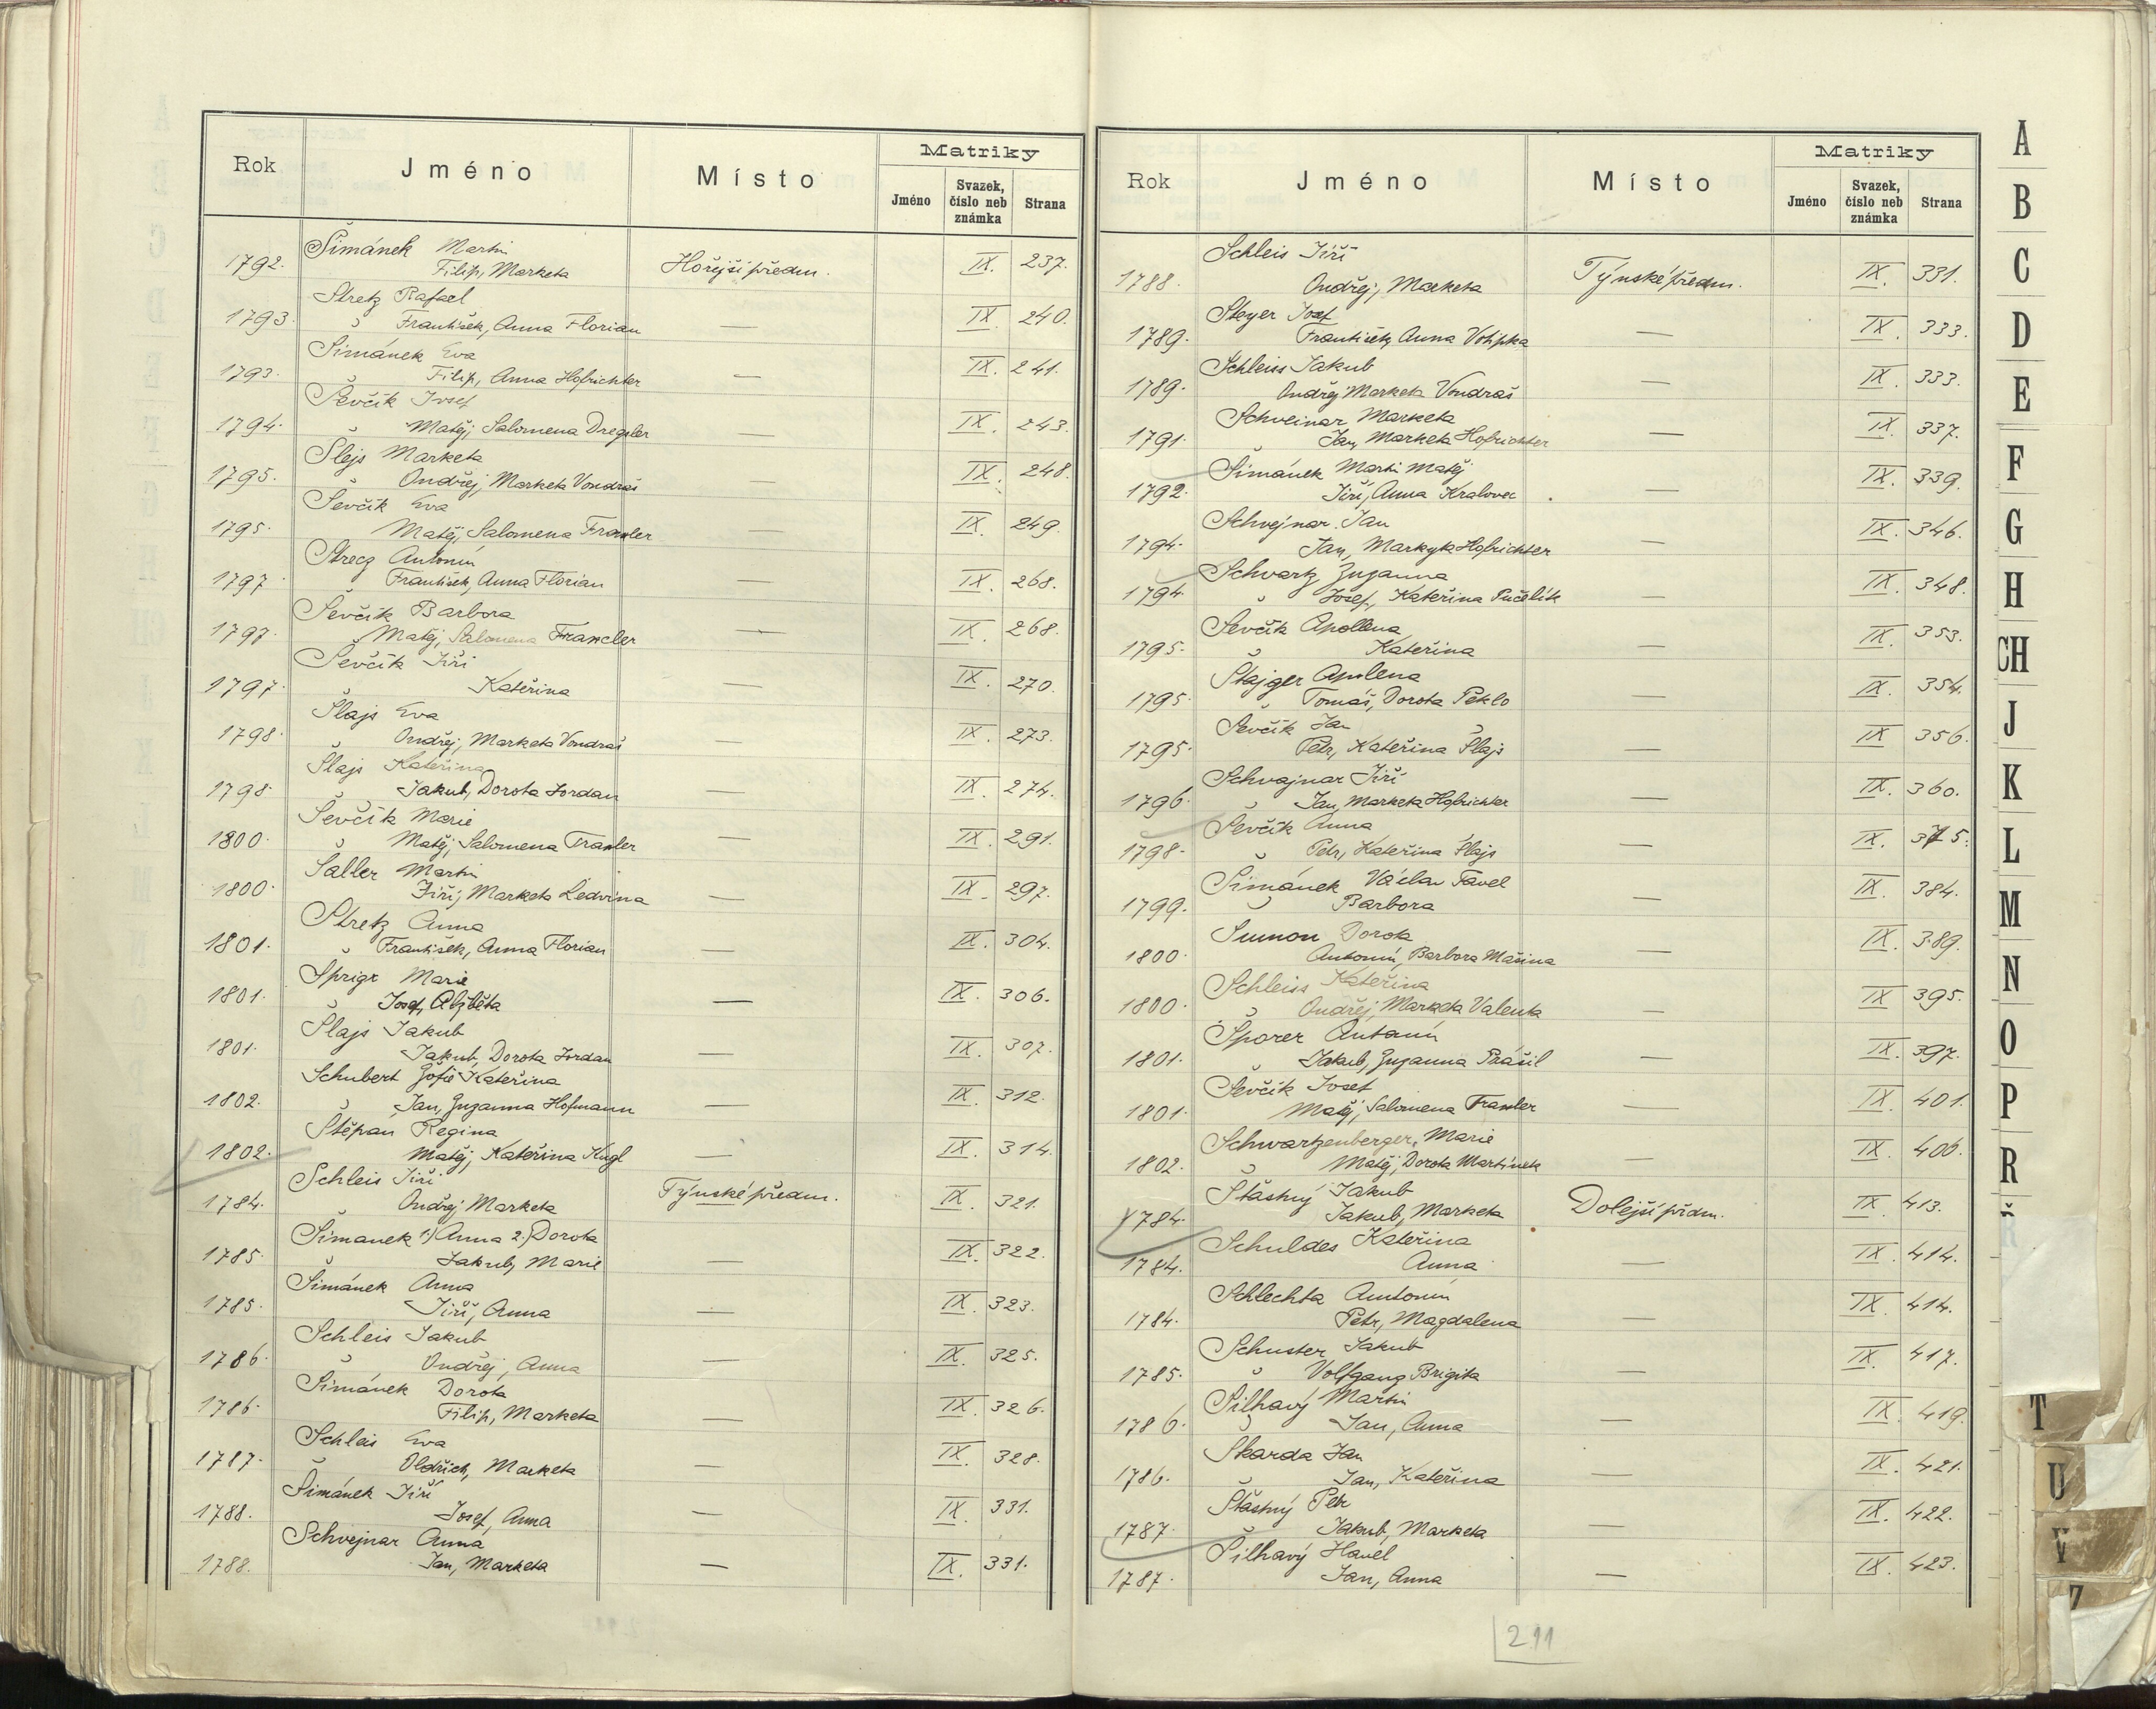 Rok Jméno Místo Matriky
Jméno Svazek, číslo neb známka Strana
Šimánek Martin
1792. Filip, Marketa Hořejší předm. IX. 237.
Stretz Rafael
1793. František, Anna Florian — IX. 240.
Šimánek Eva
1793. Filip, Anna Hofrichter — IX. 241.
Ševčík Josef
1794. Matěj, Salomena Dregsler — IX. 243.
Šlejs Marketa
1795. Ondřej, Marketa Vondraš — IX. 248.
Ševčík Eva
1795. Matěj, Salomena — IX. 249.
Strecz Antonín
1797. František, Anna Florian — IX. 268.
Ševčík Barbora
1797. Matěj, Salomena Francler — IX. 268.
Ševčík Jiří
1797. Kateřina — IX. 270.
Šlajs Eva
1798. Ondřej, Marketa Vondraš — IX. 273.
Šlajs Kateřina
1798. Jakub, Dorota Jordan — IX. 274.
Ševčík Marie
1800. Matěj, Salomena — IX. 291.
Šaller Martin
1800. Jiří, Marketa Ledvina — IX. 297.
Stretz Anna
1801. František, Anna Florian — IX. 304.
Sprigr Marie
1801. Josef, Alžběta — IX. 306.
Šlajs Jakub
1801. Jakub, Dorota Jordan — IX. 307.
Schubert Žofie Kateřina
1802. Jan, Zuzanna Hofmann — IX. 312.
Štěpán Regina
1802. Matěj, Kateřina Kugl — IX. 314.
Schleis Jiří
1784. Ondřej Marketa Týnské předm. IX. 321.
Šimanek 1.) Anna 2.) Dorota
1785. Jakub, Marie — IX. 322.
Šimánek Anna
1785. Jiří, Anna — IX. 323.
Schleis Jakub
1786. Ondřej, Anna — IX. 325.
Šimánek Dorota
1786. Filip, Marketa — IX. 326.
Schleis Eva
1787. Oldřich, Marketa — IX. 328.
Šimánek Jiří
1788. Josef, Anna — IX. 331.
Schvejnar Anna
1788. Jan, Marketa — IX. 331.
Rok Jméno Místo Matriky
Jméno Svazek, číslo neb známka Strana
Schleis Jiří
1788. Ondřej, Marketa Týnské předm. IX. 331.
Steyer Josef
1789. František, Anna Votipka — IX. 333.
Schleiss Jakub
1789. Ondřej Marketa Vondraš — IX. 333.
Schveinar Marketa
1791. Jan, Marketa Hofrichter — IX. 337.
Šimánek Martin Matěj
1792. Jiří, Anna Kralovec — IX. 339.
Schvejnar Jan
1794. Jan, Markyta Hofrichter — IX. 346.
Schvartz Zuzanna
1794. Josef, Kateřina Pučelík — IX. 348.
Ševčík Apollena
1795. Kateřina — IX. 353.
Štajger Apolena
1795. Tomáš, Dorota Peklo — IX. 354.
Ševčík Jan
1795. Petr, Kateřina Šlajs — IX. 356.
Schvajnar Jiří
1796. Jan, Marketa Hofrichter — IX. 360.
Ševčík Anna
1798. Petr, Kateřina Šlajs — IX. 375.
Šimánek Václav Pavel
1799. Barbora — IX. 384.
Dorota
1800. Antonín, Barbora Mašina — IX. 389.
Schleiss Kateřina
1800. Ondřej, Marketa Valenta — IX. 395.
Šporer Antonín
1801. Jakub, Zuzanna Prášil — IX. 397.
Ševčík Josef
1801. Matěj, Salomena — IX. 401.
Schwartzenberger, Marie
1802. Matěj, Dorota Martínek — IX. 406.
Šťastný Jakub
1784. Jakub, Marketa Dolejší předm. IX. 413.
Schuldes Kateřina
1784. Anna — IX. 414.
Schlechta Antonín
1784. Petr, Magdalena — IX. 414.
Schuster Jakub
1785. Volfgang Brigita — IX. 417.
Šilhavý Martin
1786. Jan, Anna — IX. 419.
Skarda Jan
1786. Jan, Kateřina — IX. 421.
Šťastný Petr
1787. Jakub, Marketa — IX. 422.
Šilhavý Havel
1787. Jan, Anna — IX. 423.
211
A
B
C
D
E
F
G
H
CH
J
K
L
M
N
O
P
R
T
U
V
Z